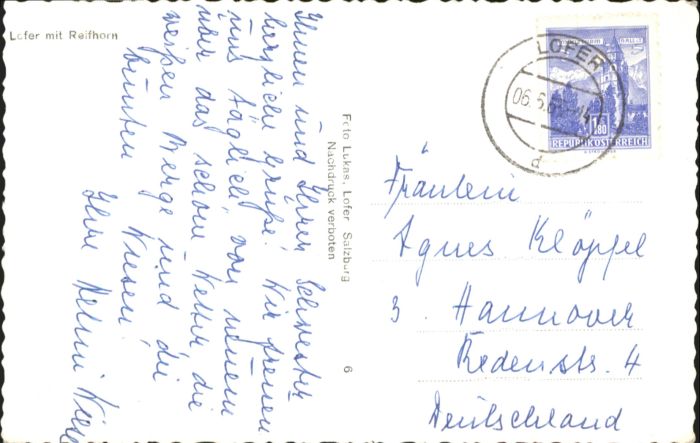 Lofer mit Reifhorn
Ihnen und Ihrer Schwester
herzliche Grüße! Wir freuen
uns täglich von neuem
über das schöne Wetter, die
weißen Berge und die
bunten Wiesen!
Ihre
Foto Lukas, Lofer Salzburg
Nachdruck verboten
6
LOFER
06. 5. 6
d
1.80
REPUBLIK ÖSTERREICH
Fräulein
Agnes Klöppel
3. Hannover
Redenstr. 4
Deutschland